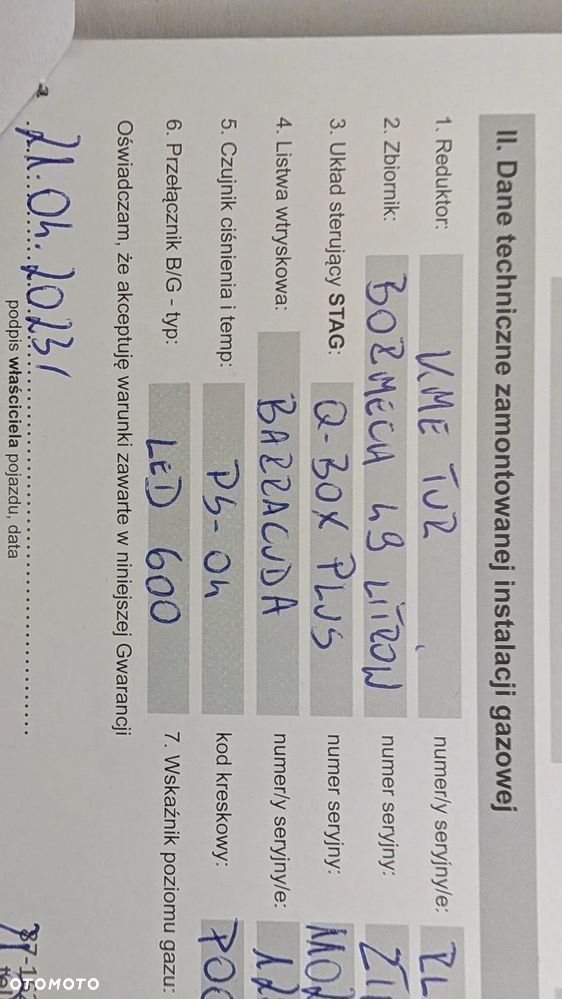 II. Dane techniczne zamontowanej instalacji gazowej
1. Reduktor: KME TUR numer/y seryjny/e:
2. Zbiornik: BORMECH 49 LITRÓW numer seryjny:
3. Układ sterujący STAG: Q-BOX PLUS numer seryjny: M02
4. Listwa wtryskowa: BARRACUDA numer/y seryjny/e: 12
5. Czujnik ciśnienia i temp: PS-04 kod kreskowy: P00
6. Przełącznik B/G - typ: LED 600 7. Wskaźnik poziomu gazu:
Oświadczam, że akceptuję warunki zawarte w niniejszej Gwarancji
21.04.2023r
podpis właściciela pojazdu, data
OTOMOTO